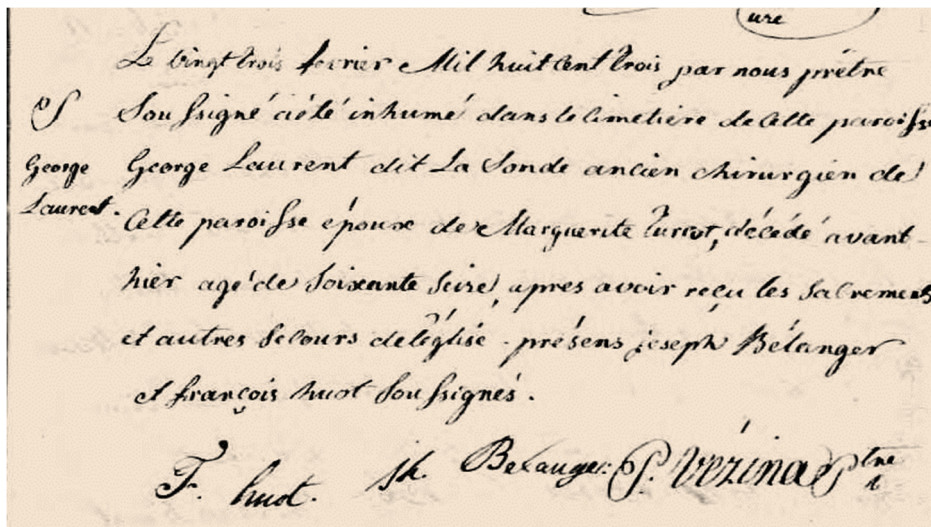 ure
Le vingt trois fevrier Mil huit cent trois par nous prêtre
S
Soussigné a été inhumé dans le cimetière de Cette paroisse
George
George Laurent dit La Sonde ancien chirurgien de
Laurent.
Cette paroisse époux de Marguerite Turcot, décédé avant-
hier agé de Soixante Seize, apres avoir reçu les Sacremens
et autres Secours de l'église - présens joseph Bélanger
et françois huot Soussignés.
F. huot. Jh. Belanger. P. Vézina Ptre